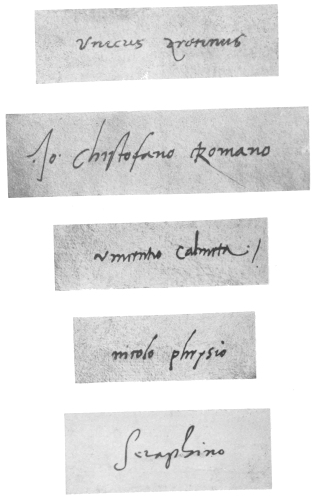 Vnecus Aretinus
.Jo. Christofano Romano
Vincentio Calmeta ./
nicolo phrysio
Seraphino